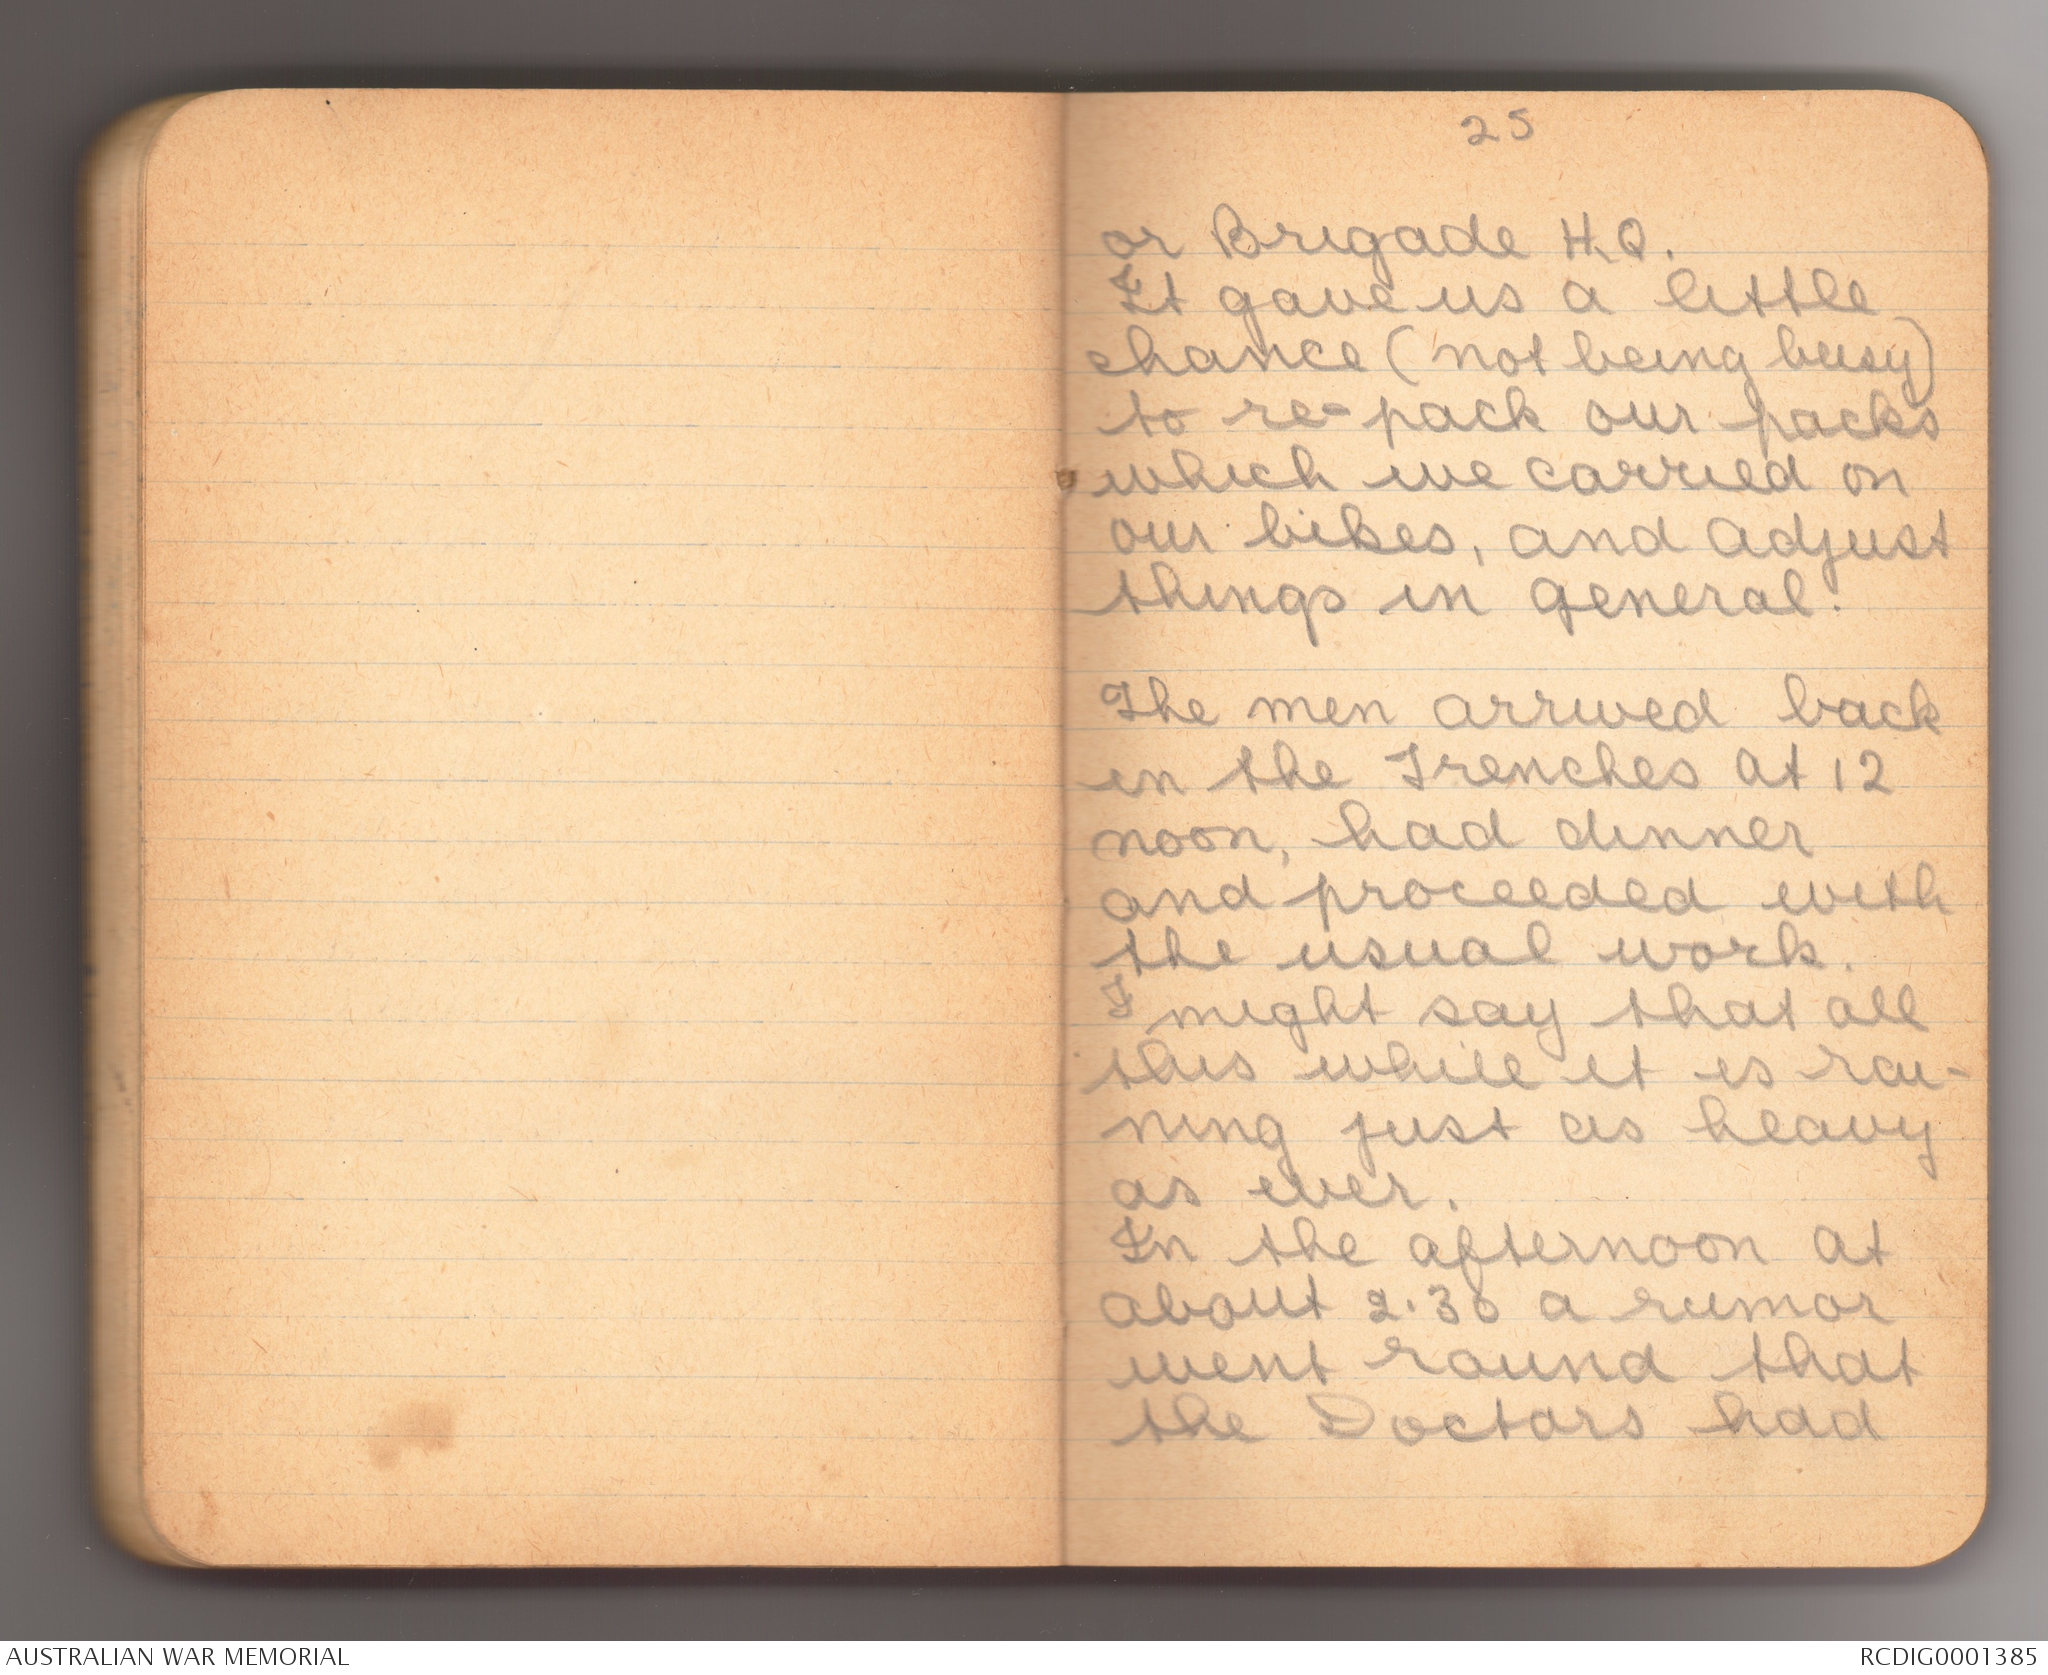 25
or Brigade H.Q.
It gave us a little
chance (not being busy)
to re-pack our packs
which we carried on
our bikes, and adjust
things in general.
The men arrived back
in the Trenches at 12
noon, had dinner
and proceeded with
the usual work.
I might say that all
this while it is rai-
ning just as heavy
as ever.
In the afternoon at
about 2.30 a rumor
went round that
the Doctors had
AUSTRALIAN WAR MEMORIAL
RCDIG0001385